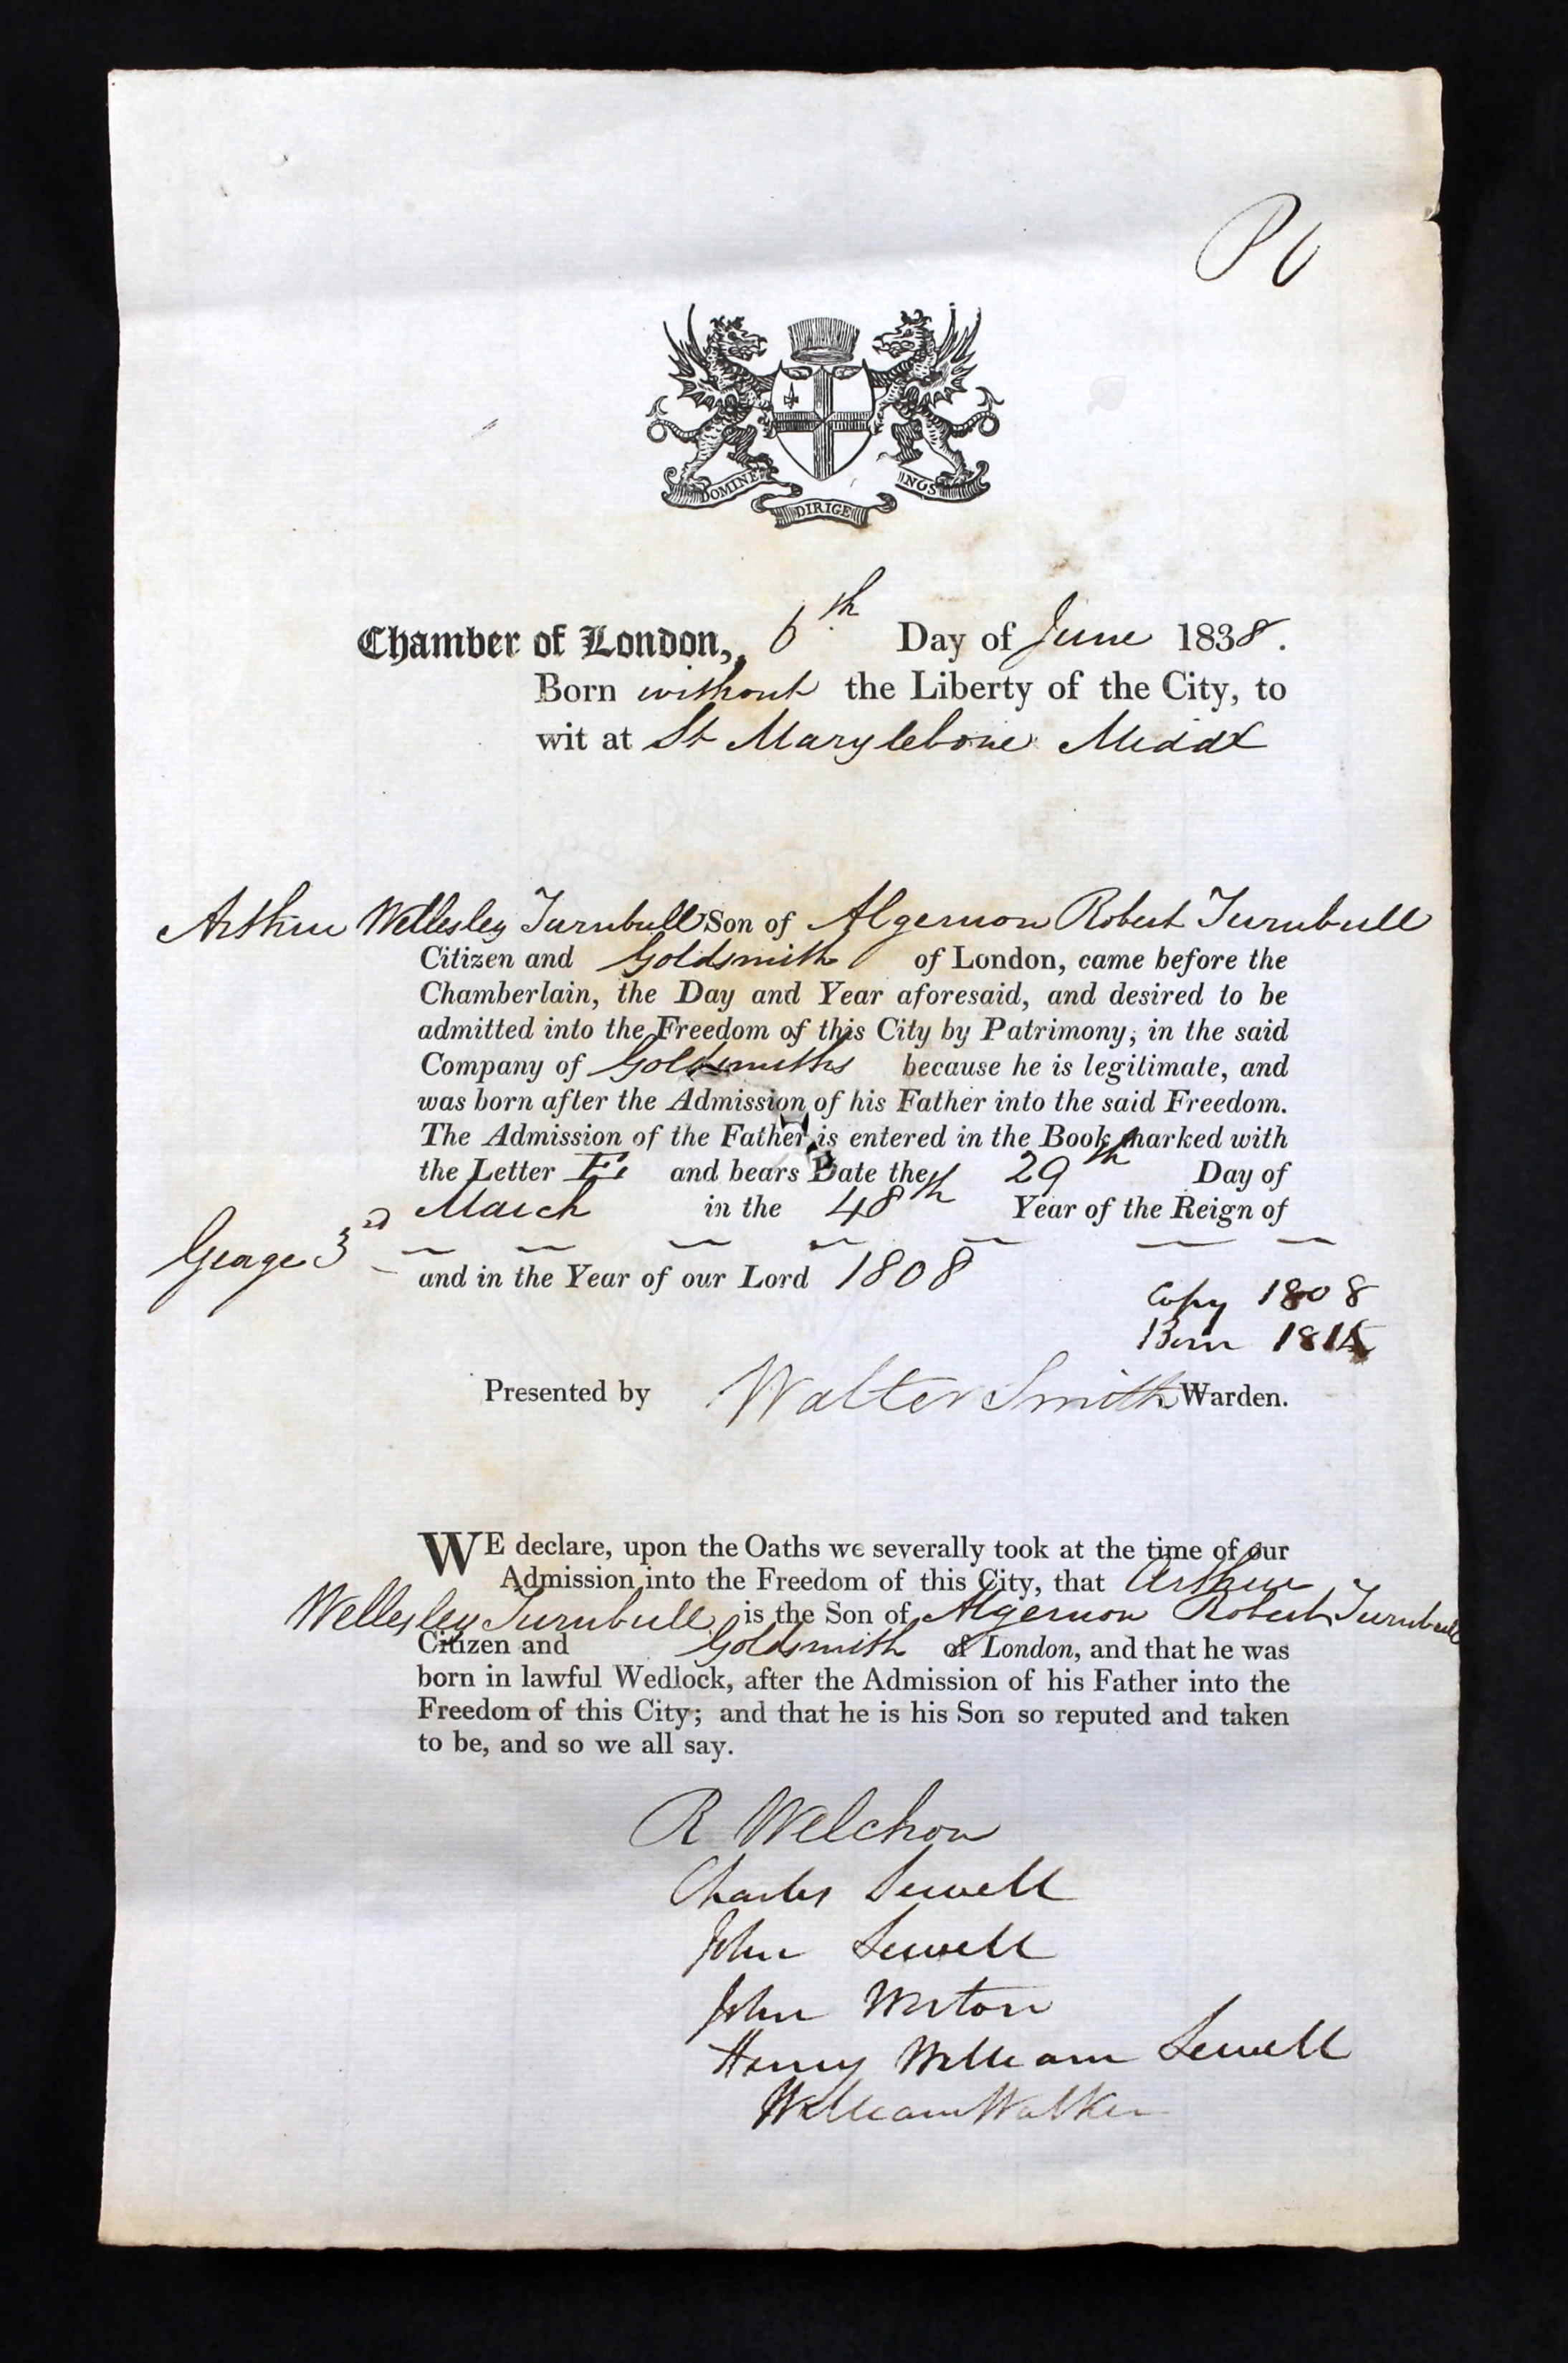 P 6
DOMINE DIRIGE NOS
Chamber of London, 6th Day of June 1838.
Born without the Liberty of the City, to
wit at St Marylebone Middx
Arthur Wellesley Turnbull Son of Algernon Robert Turnbull
Citizen and Goldsmith of London, came before the
Chamberlain, the Day and Year aforesaid, and desired to be
admitted into the Freedom of this City by Patrimony, in the said
Company of Goldsmiths because he is legitimate, and
was born after the Admission of his Father into the said Freedom.
The Admission of the Father is entered in the Book marked with
the Letter E and bears Date the 29th Day of
March in the 48th Year of the Reign of
George 3rd
and in the Year of our Lord 1808
Copy 1808
Born 1815
Presented by Walter Smith Warden.
WE declare, upon the Oaths we severally took at the time of our
Admission into the Freedom of this City, that Arthur
Wellesley Turnbull is the Son of Algernon Robert Turnbull
Citizen and Goldsmith of London, and that he was
born in lawful Wedlock, after the Admission of his Father into the
Freedom of this City; and that he is his Son so reputed and taken
to be, and so we all say.
R Welchon
Charles Sewell
John Sewell
John
Henry William Sewell
William Walker